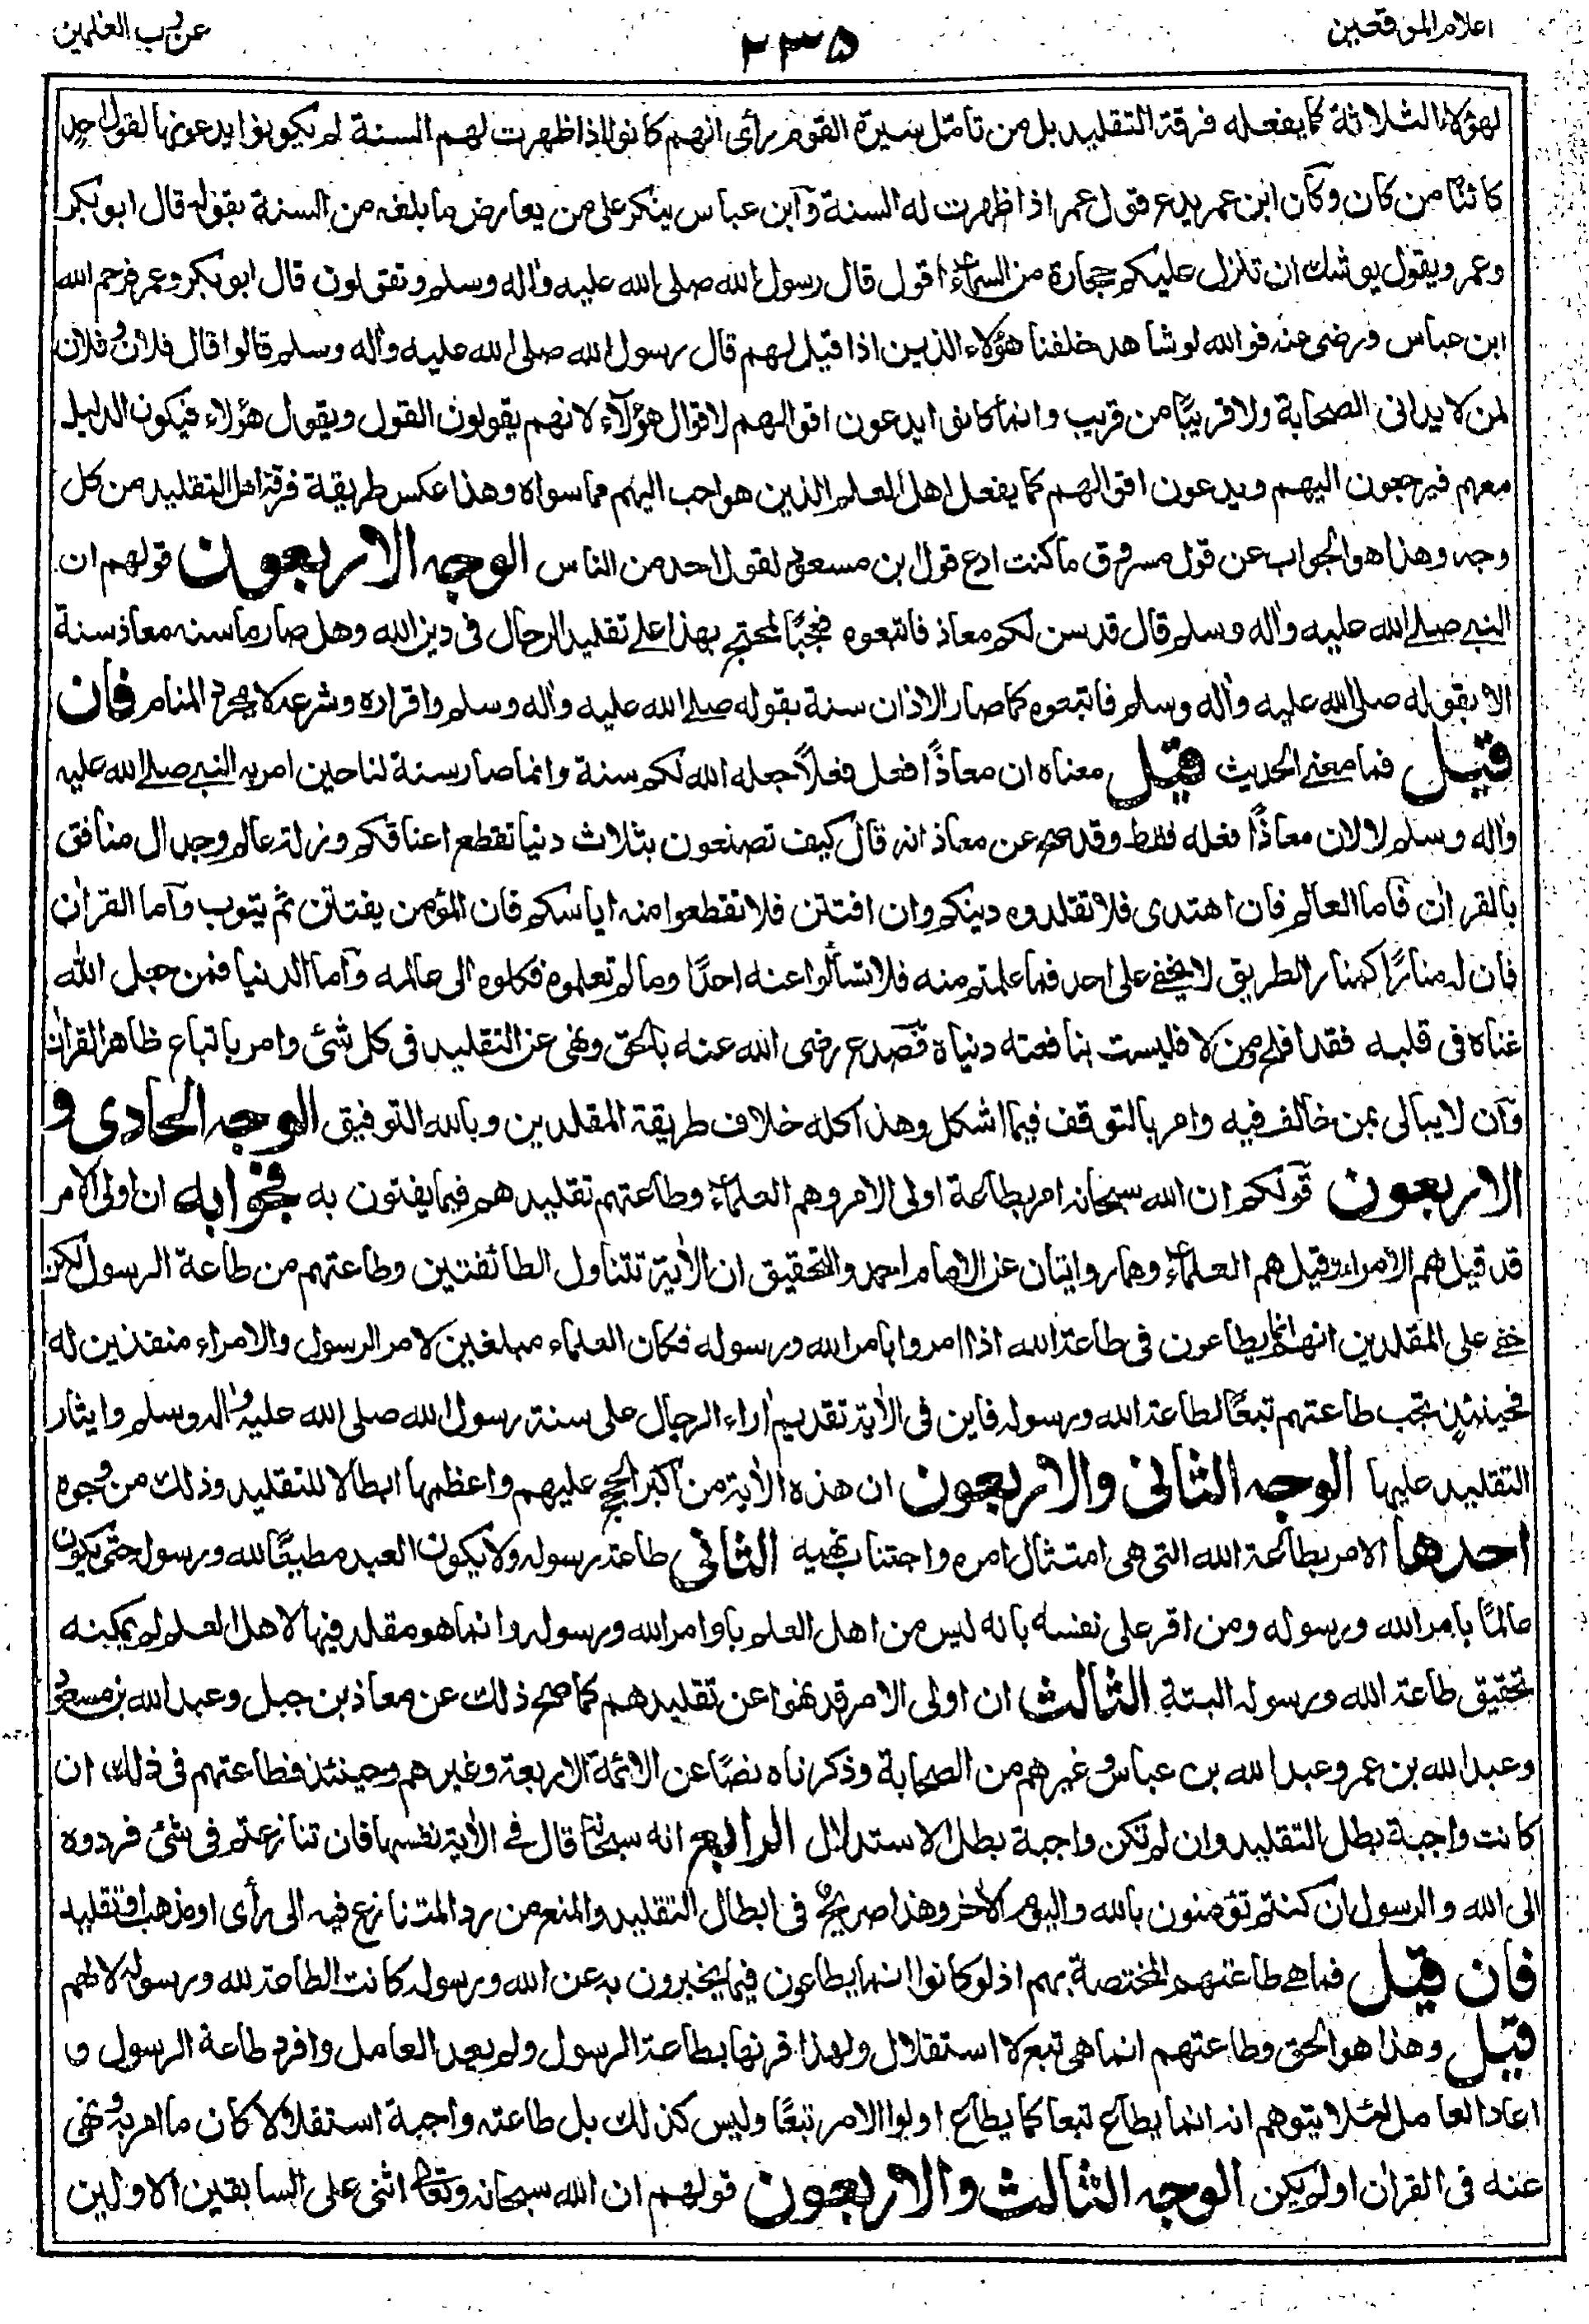 اعلام الموقعين
٢٣٥
عن رب العلمين
لهؤلاء الثلاثة كما يفعله فرقة التقليد بل من تأمّل سيرة القوم رأى انهم كانوا اذا ظهرت لهم السنة لم يكونوا يدعونها لقول احد
كائنًا من كان وكان ابن عمر يدع قول عمر اذا ظهرت له السنة وابن عباس ينكر على من يعارض ما بلغه من السنة بقوله قال ابو بكر
وعمر ويقول يوشك ان تنزل عليكم حجارة من السماء اقول قال رسول الله صلى الله عليه واٰله وسلم وتقولون قال ابو بكر وعمر فرحم الله
ابن عباس ورضى عنه فوالله لو شاهد خلفنا هؤلاء الذين اذا قيل لهم قال رسول الله صلى الله عليه واٰله وسلم قالوا قال فلان وفلان
لمن لا يدانى الصحابة ولا قريبًا من قريب وانما كانوا يدعون اقوالهم لاقوال هؤلاء لانهم يقولون القول ويقول هؤلاء فيكون الدليل
معهم فيرجعون اليهم ويدعون اقوالهم كما يفعل اهل العلم الذين هو احب اليهم مما سواه وهذا عكس طريقة فرقة اهل التقليد من كل
وجه وهذا هو الجواب عن قول مسروق ما كنت ادع قول ابن مسعود لقول احد من الناس الوجه الاربعون قولهم ان
النبى صلى الله عليه واٰله وسلم قال قد سن لكم معاذ فاتبعوه فعجبًا لمحتج بهذا على تقليد الرجال فى دين الله وهل صار ما سنه معاذ سنة
الا بقوله صلى الله عليه واٰله وسلم فاتبعوه كما صار الاذان سنة بقوله صلى الله عليه واٰله وسلم واقراره وشرعه لا بمجرد المنام فان
قيل فما معنى الحديث قيل معناه ان معاذًا فعل فعلًا جعله الله لكم سنة وانما صار سنة لنا حين امر به النبى صلى الله عليه
واٰله وسلم لا لان معاذًا فعله فقط وقد صح عن معاذ انه قال كيف تصنعون بثلاث دنيا تقطع اعناقكم وزلة عالم وجدال منافق
بالقراٰن فاما العالم فان اهتدى فلا تقلدوه دينكم وان افتتن فلا تقطعوا منه اياسكم فان المؤمن يفتتن ثم يتوب واما القراٰن
فان له منارًا كمنار الطريق لا يخفى على احد فما علمتم منه فلا تسألوا عنه احدًا وما لم تعلموه فكلوه الى عالمه واما الدنيا فمن جعل الله
غناه فى قلبه فقد افلح ومن لا فليست بنافعته دنياه فصدع رضى الله عنه بالحق ونهى عن التقليد فى كل شئ وامر باتباع ظاهر القراٰن
وان لا يبالى بمن خالف فيه وامر بالتوقف فيما اشكل وهذا كله خلاف طريقة المقلدين وبالله التوفيق الوجه الحادى و
الاربعون قولكم ان الله سبحانه امر بطاعة اولى الامر وهم العلماء وطاعتهم تقليدهم فيما يفتون به فجوابه ان اولى الامر
قد قيل هم الامراء وقيل هم العلماء وهما روايتان عن الامام احمد والتحقيق ان الاٰية تتناول الطائفتين وطاعتهم من طاعة الرسول لكن
خفى على المقلدين انهم انما يطاعون فى طاعة الله اذا امروا بامر الله ورسوله فكان العلماء مبلغين لامر الرسول والامراء منفذين له
فحينئذٍ تجب طاعتهم تبعًا لطاعة الله ورسوله فاين فى الاٰية تقديم اٰراء الرجال على سنة رسول الله صلى الله عليه واٰله وسلم وايثار
التقليد عليها الوجه الثانى والاربعون ان هذه الاٰية من اكبر الحجج عليهم واعظمها ابطالا للتقليد وذلك من وجوه
احدها الامر بطاعة الله التى هى امتثال امره واجتناب نهيه الثانى طاعة رسوله ولا يكون العبد مطيعًا لله ورسوله حتى يكون
عالمًا بامر الله ورسوله ومن اقر على نفسه بانه ليس من اهل العلم باوامر الله ورسوله وانما هو مقلد فيها لاهل العلم لم يمكنه
تحقيق طاعة الله ورسوله البتة الثالث ان اولى الامر قد نهوا عن تقليدهم كما صح ذلك عن معاذ بن جبل وعبد الله بن مسعود
وعبد الله بن عمر وعبد الله بن عباس وغيرهم من الصحابة وذكرناه نصًا عن الائمة الاربعة وغيرهم وحينئذ فطاعتهم فى ذلك ان
كانت واجبة بطل التقليد وان لم تكن واجبة بطل الاستدلال الرابع انه سبحانه قال فى الاٰية نفسها فان تنازعتم فى شئ فردوه
الى الله والرسول ان كنتم تؤمنون بالله واليوم الاٰخر وهذا صريح فى ابطال التقليد والمنع من رد المتنازع فيه الى رأى او مذهب او تقليد
فان قيل فما هى طاعتهم المختصة بهم اذ لو كانوا انما يطاعون فيما يخبرون به عن الله ورسوله كانت الطاعة لله ورسوله لا لهم
قيل وهذا هو الحق وطاعتهم انما هى تبع لا استقلال ولهذا قرنها بطاعة الرسول ولم يعد العامل وافرد طاعة الرسول و
اعاد العامل لئلا يتوهم انه انما يطاع تبعا كما يطاع اولوا الامر تبعًا وليس كذلك بل طاعته واجبة استقلالا كان ما امر به ونهى
عنه فى القراٰن او لم يكن الوجه الثالث والاربعون قولهم ان الله سبحانه وتعالى اثنى على السابقين الاولين